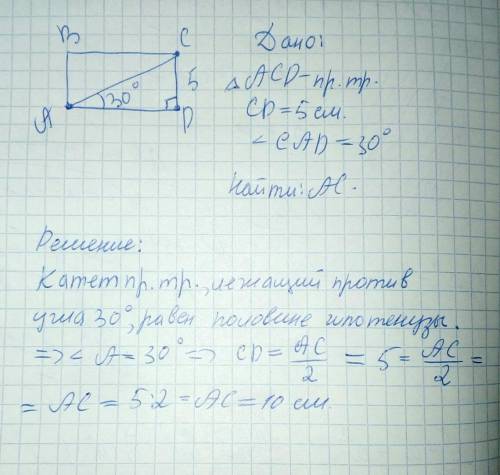 B C
5
30°
A D
Дано:
△ ACD - пр. тр.
CD = 5 см.
∠CAD = 30°
Найти: AC.
Решение:
Катет пр. тр., лежащий против
угла 30°, равен половине гипотенузы.
=> ∠A = 30° => CD = AC/2 = 5 = AC/2 =
= AC = 5:2 = AC = 10 см.